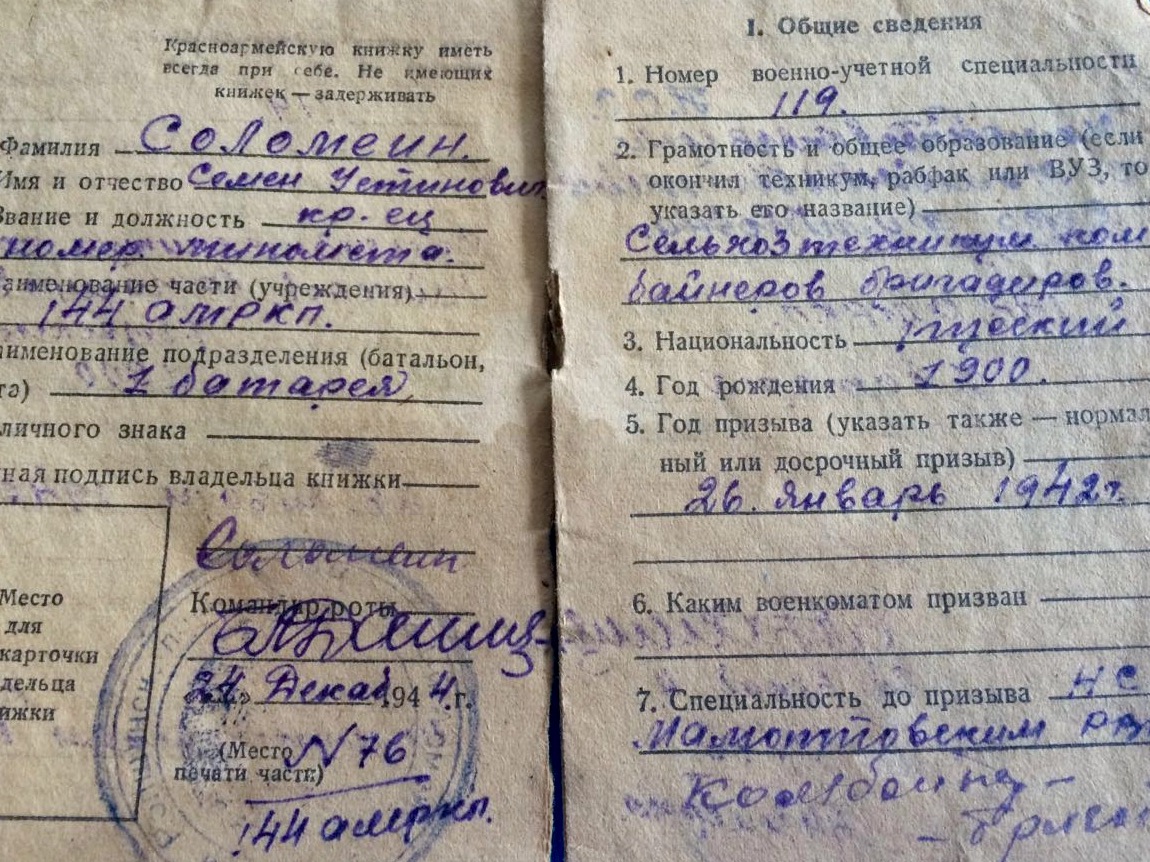 Красноармейскую книжку иметь
всегда при себе. Не имеющих
книжек — задерживать
Фамилия Соломеин.
Имя и отчество Семен Устинович
Звание и должность кр. ец
номер миномета.
аименование части (учреждения)
144 ампркп.
именование подразделения (батальон,
та) 1 батарея
личного знака
ная подпись владельца книжки
Соломеин
Командир роты
24 » Декаб 1944 г.
(Место N 76
печати части)
144 ампркп.
Место
для
карточки
дельца
ижки
I. Общие сведения
1. Номер военно-учетной специальности
119.
2. Грамотность и общее образование (если
окончил техникум, рабфак или ВУЗ, то
указать его название)
Сельхозтехникум ком
байнеров бригадиров.
3. Национальность русский
4. Год рождения 1900.
5. Год призыва (указать также — нормал
ный или досрочный призыв)
26. январь 1942 г.
6. Каким военкоматом призван
7. Специальность до призыва
Мамонтовским
Комбайне-